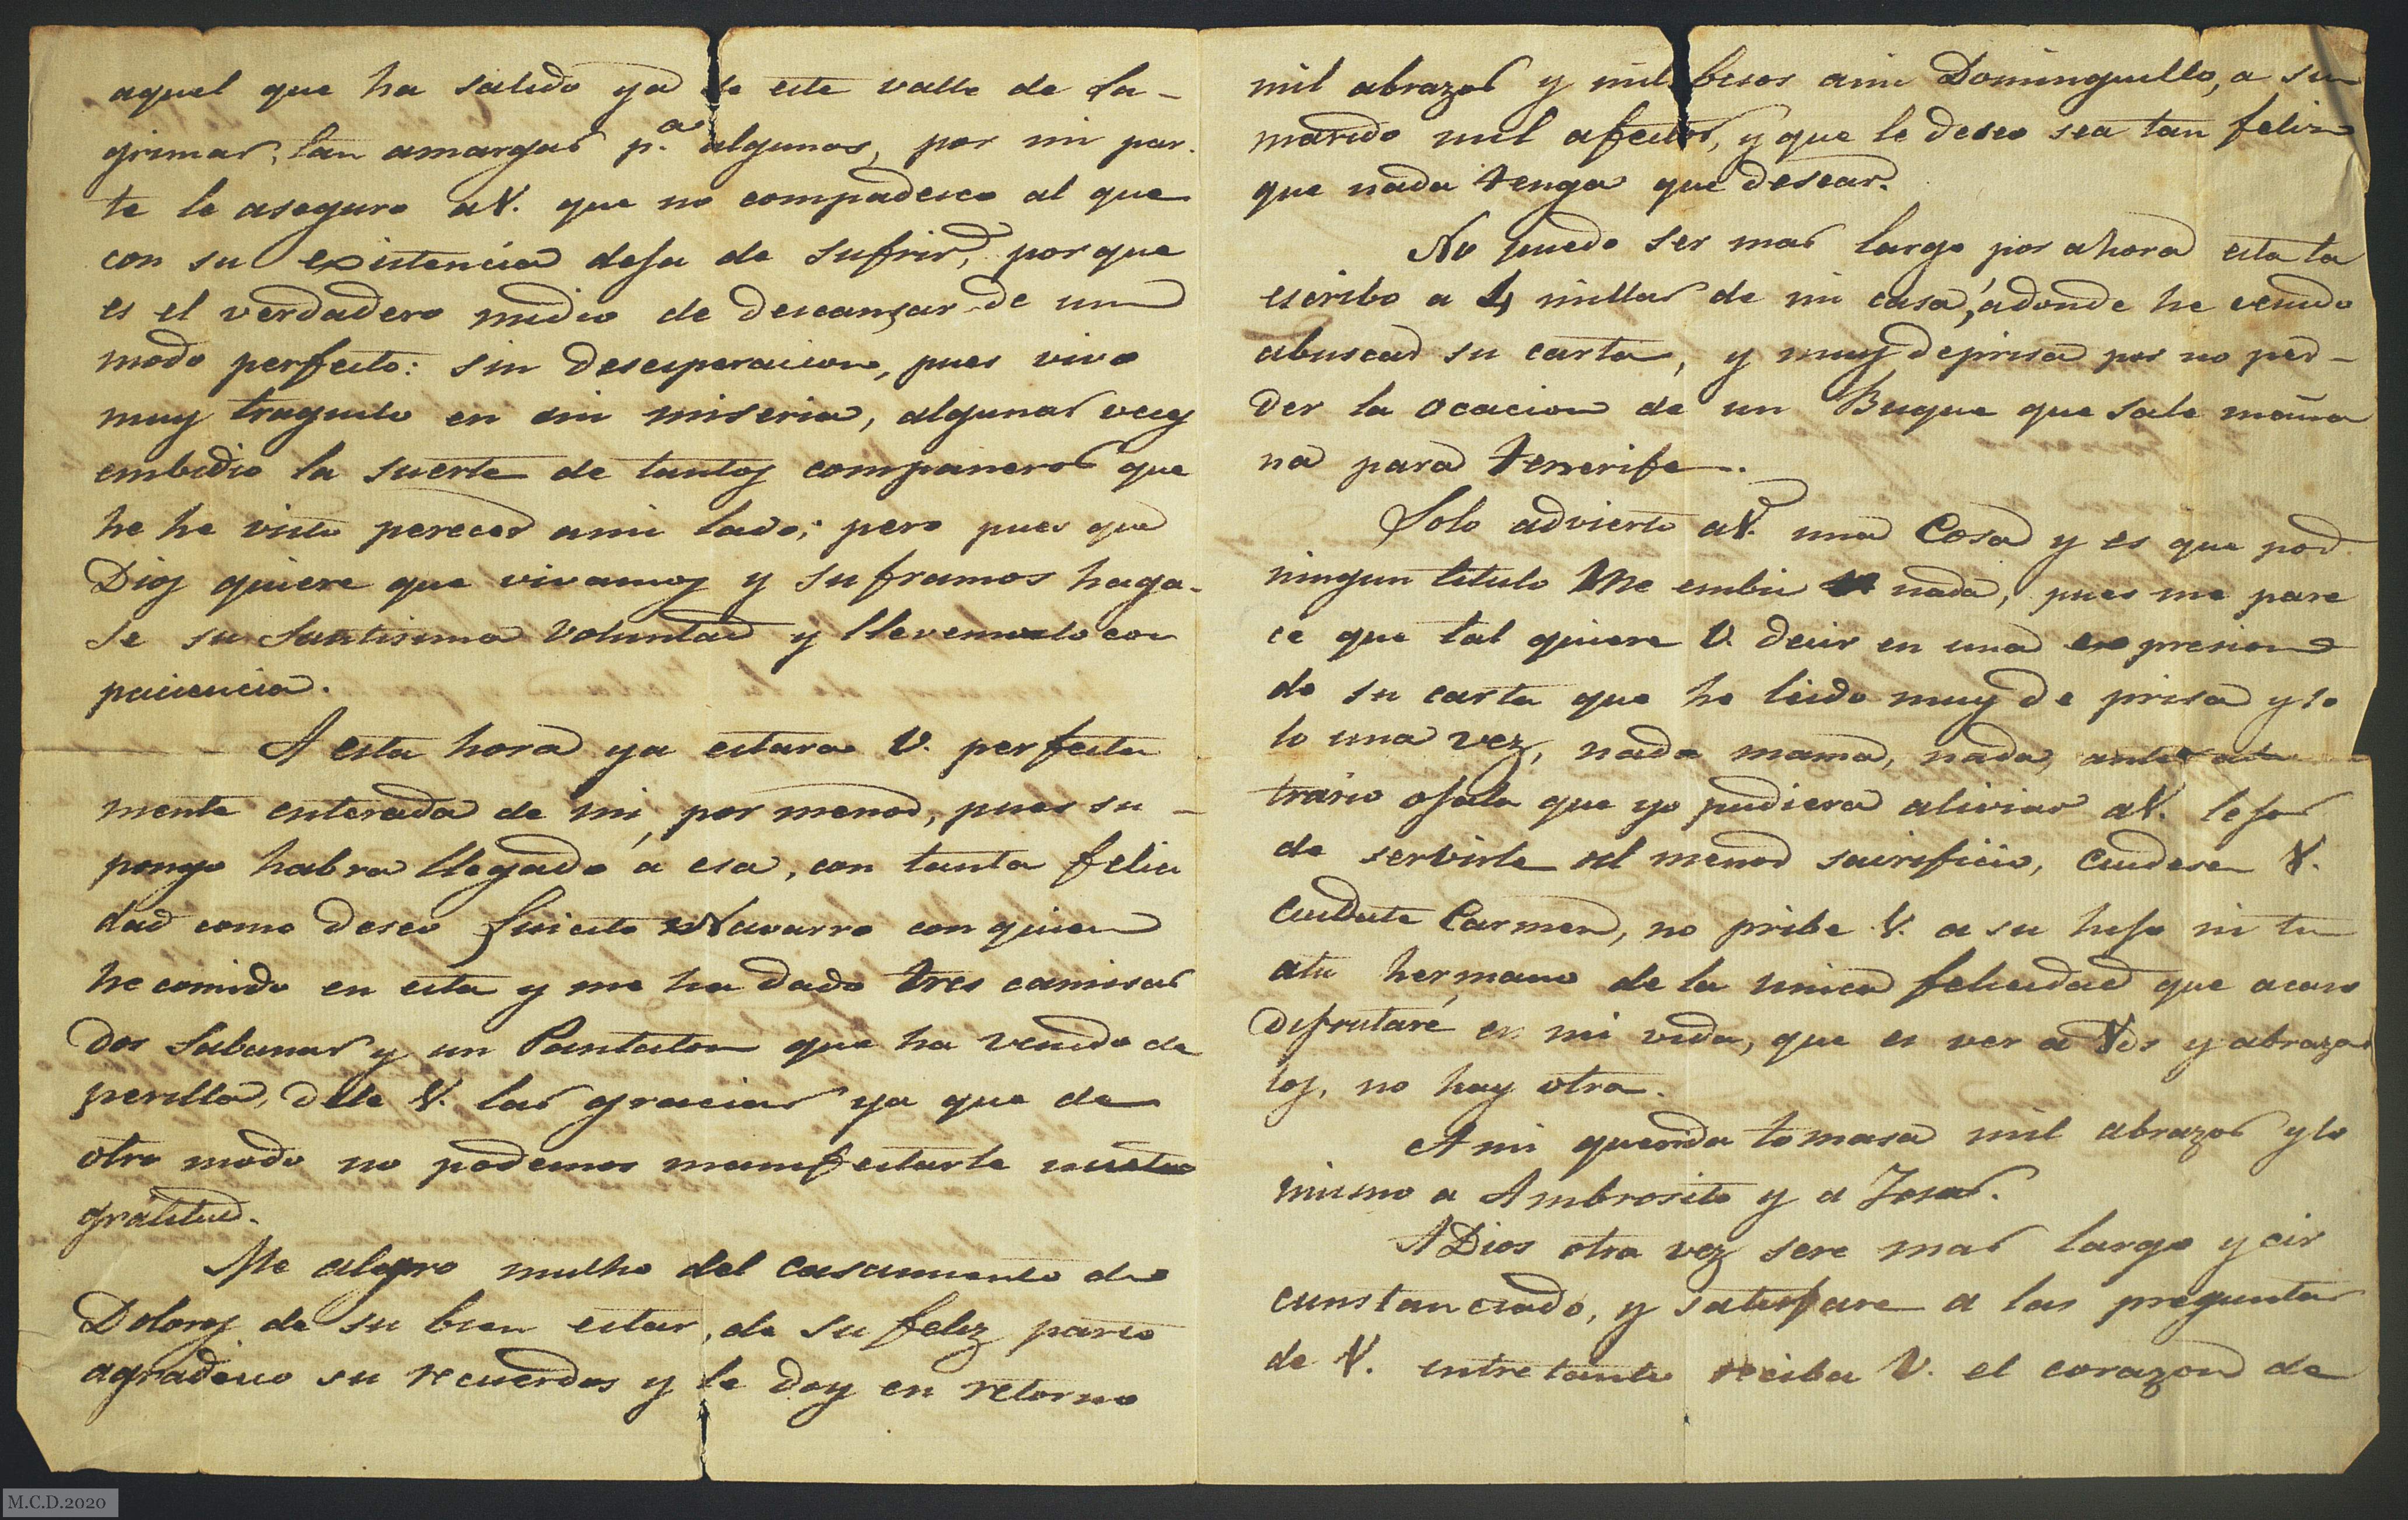 aquel que ha salido ya de este valle de la-
grimas, tan amargas p.a algunos, por mi par-
te le aseguro aV. que no compadesco al que
con su existencia deja de sufrir, por que
es el verdadero medio de descansar de un
modo perfecto: sin desesperacion, pues vivo
muy traquilo en mi miseria, algunas veces
embidio la suerte de tantos compañeros que
he he visto perecer ami lado; pero pues que
Dios quiere que vivamos y suframos haga-
se su Santisima Voluntad y llevemoslo con
paciencia.
A esta hora ya estara V. perfecta
mente enterada de mi por menor, pues su-
pongo habra llegado á esa, con tanta felici
dad como deseo Navarro con quien
he comido en esta y me ha dado tres camisas
dos sabanas y un Pantalon que ha venido de
perilla, dele V. las gracias ya que de
otro modo no podemos manifestarle nuestra
gratitud.
Me alegro mucho del casamiento de
Dolores de su bien estar, de su feliz parto
agradesco su recuerdos y le doy en retorno
mil abrazos y mil besos ami Dominguillo, a su
marido mil afectos, y que le deseo sea tan feliz
que nada tenga que desear.
No puedo ser mas largo por ahora esta la
escribo a 4 millas de mi casa, adonde he venido
abuscar su carta, y muy deprisa por no per-
der la ocacion de un Buque que sale maña
na para tenerife.
Solo advierto aV. una Cosa y es que por
ningun titulo Me embie nada, pues me pare
ce que tal quiere V. decir en una expresion
de su carta que he leido muy de prisa y so
lo una vez, nada mama, nada, antes
trario ojala que yo pudiera aliviar aV. lejos
de servirle del menor sacrificio, cuidese V.
cuidate Carmen, no pribe V. a su hijo ni tu
atu hermano de la unica felicidad que acaso
disfrutaré en mi vida, que es ver a Vds y abrazar
los, no hay otra.
A mi querida tomasa mil abrazos y lo
mismo a Ambrosito y a
A Dios otra vez sere mas largo y cir
cunstanciado, y satisfare a las preguntas
de V. entretanto reciba V. el corazon de
M.C.D.2020